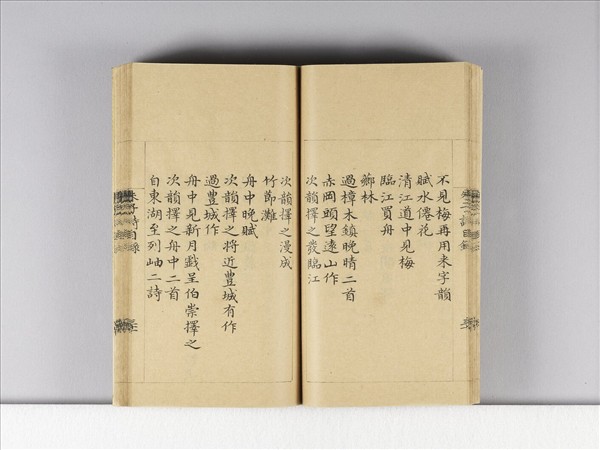 不見梅再用来字韻
賦水僊花
清江道中見梅
臨江買舟
薌林
過樟木鎮晚晴二首
赤岡頭望遠山作
次韻擇之發臨江
次韻擇之漫成
竹節灘
舟中晚賦
次韻擇之將近豐城有作
過豐城作
舟中見新月戲呈伯崇擇之
次韻擇之舟中二首
自東湖至列岫二詩